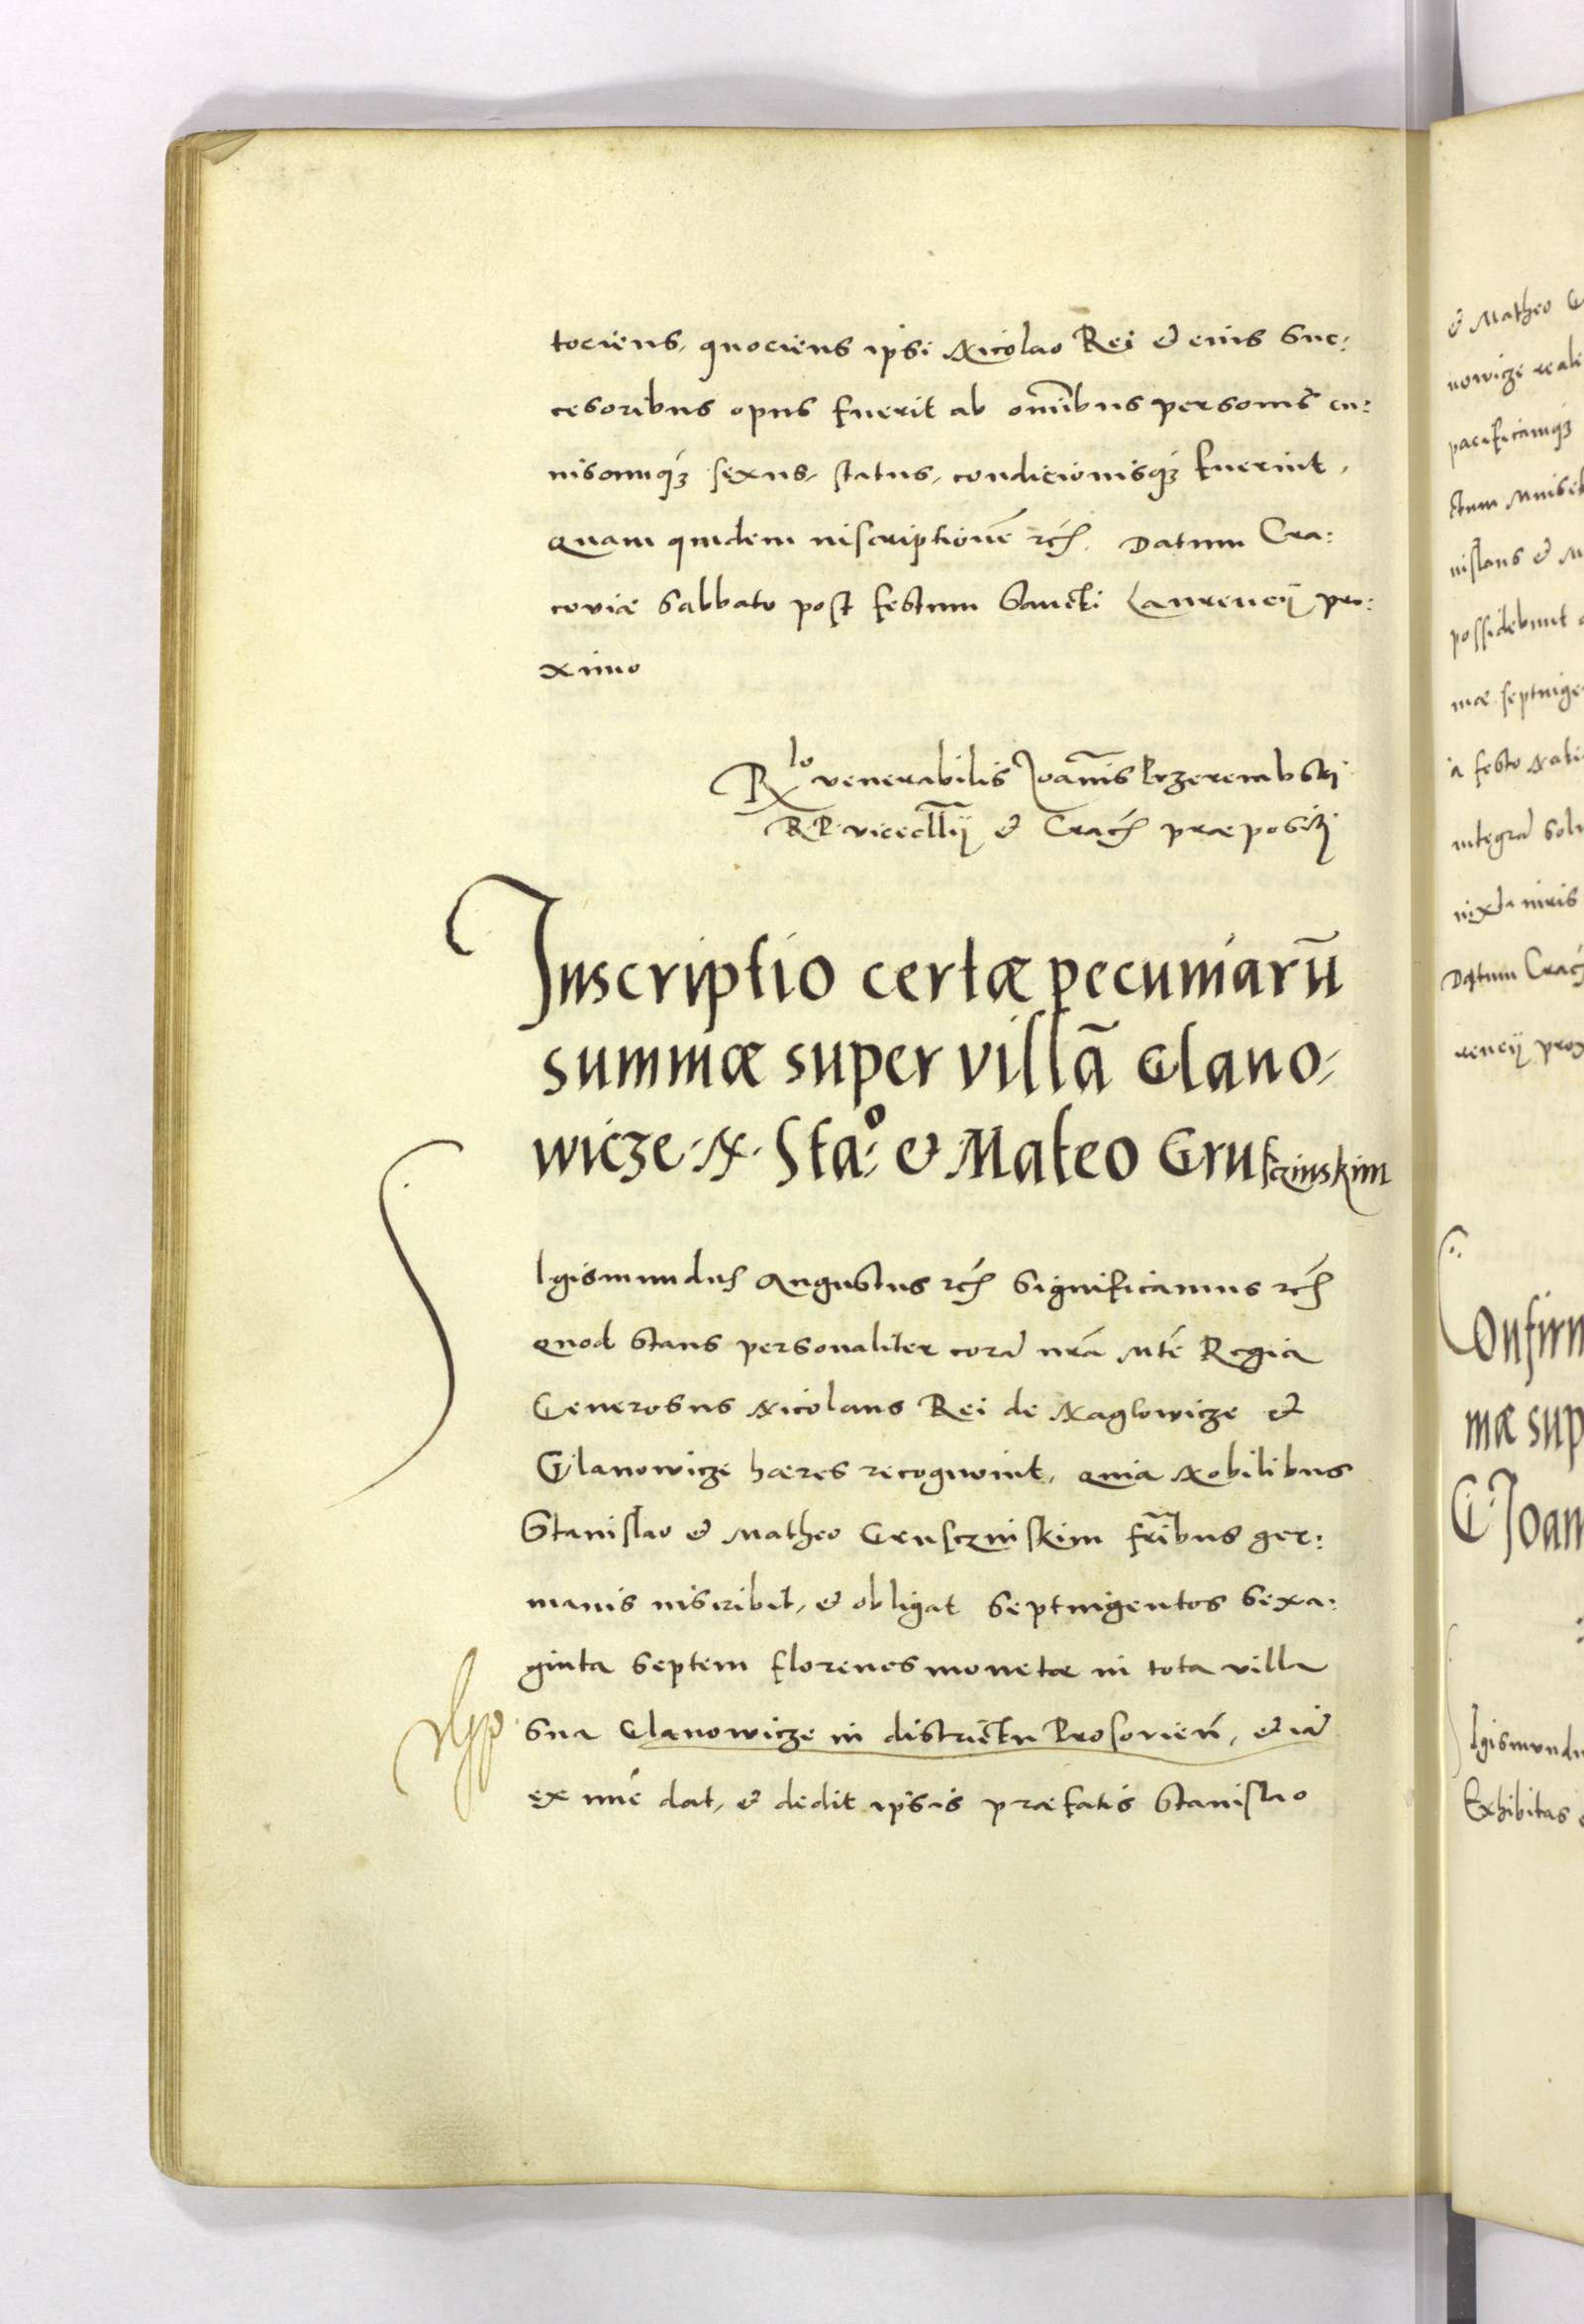 tociens, quociens ipsi Nicolao Rei et eius suc:
cesoribus opus fuerit ab omībus personis cu:
iuscunq3 sexus, status, condicionisq3 fuerint,
Quam quidem inscriptionē etc. Datum Cra:
coviæ Sabbato post festum Sancti Laurencij pro:
ximo
Rlo venerabilis Joānis Przerembski
R. P. vicecllīj et Crac præpositi
Inscriptio certæ pecuniarū
summæ super villā Glano,
wicze. N. Sta:o et Mateo Grusczinskim
SIgismundus Augustus etc significamus etc
Quod stans personaliter corā nrā Mte Regia
Generosus Nicolaus Rei de Naglowicze et
Glanowicze hæres recognovit, quia Nobilibus
Stanislao et Matheo Gruscziniskim frībus ger:
manis inscribit, et obligat septuigentos sexa:
ginta septem florenos monetæ in tota villa
sua Glanowicze in districtu Prosovieñ, et iā
ex nūc dat, et dedit ipsis præfatis Stanislao
et Matheo G
nowicze reali
pacificamq3
nislaus et M
possidebunt
mæ septuige
à festo Nati
integrā solu
iuxta iuris
Datum Crac
rencij prox
Confirm
mæ sup
G Joan
Igismundu
Exhibitas